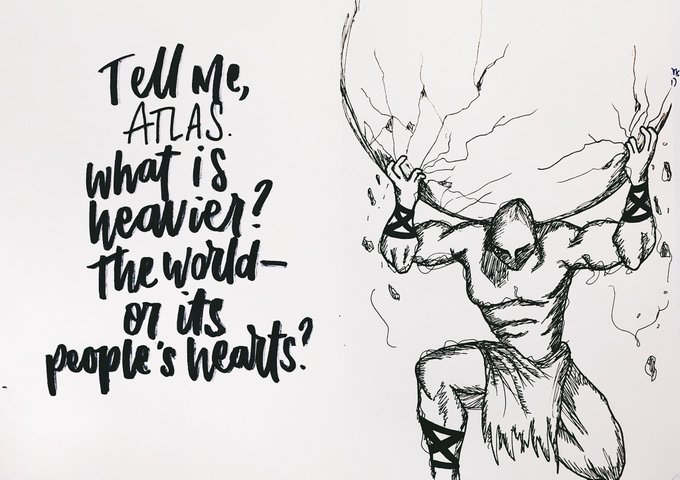 Tell me,
ATLAS.
what is
heavier?
the world—
or its
people's hearts?